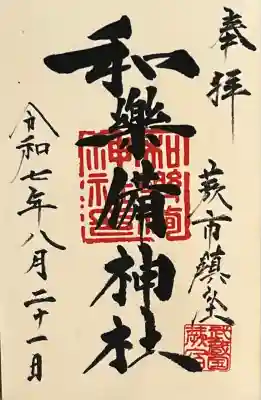 奉拝
蕨市鎮座
和樂備神社
令和七年八月二十一日